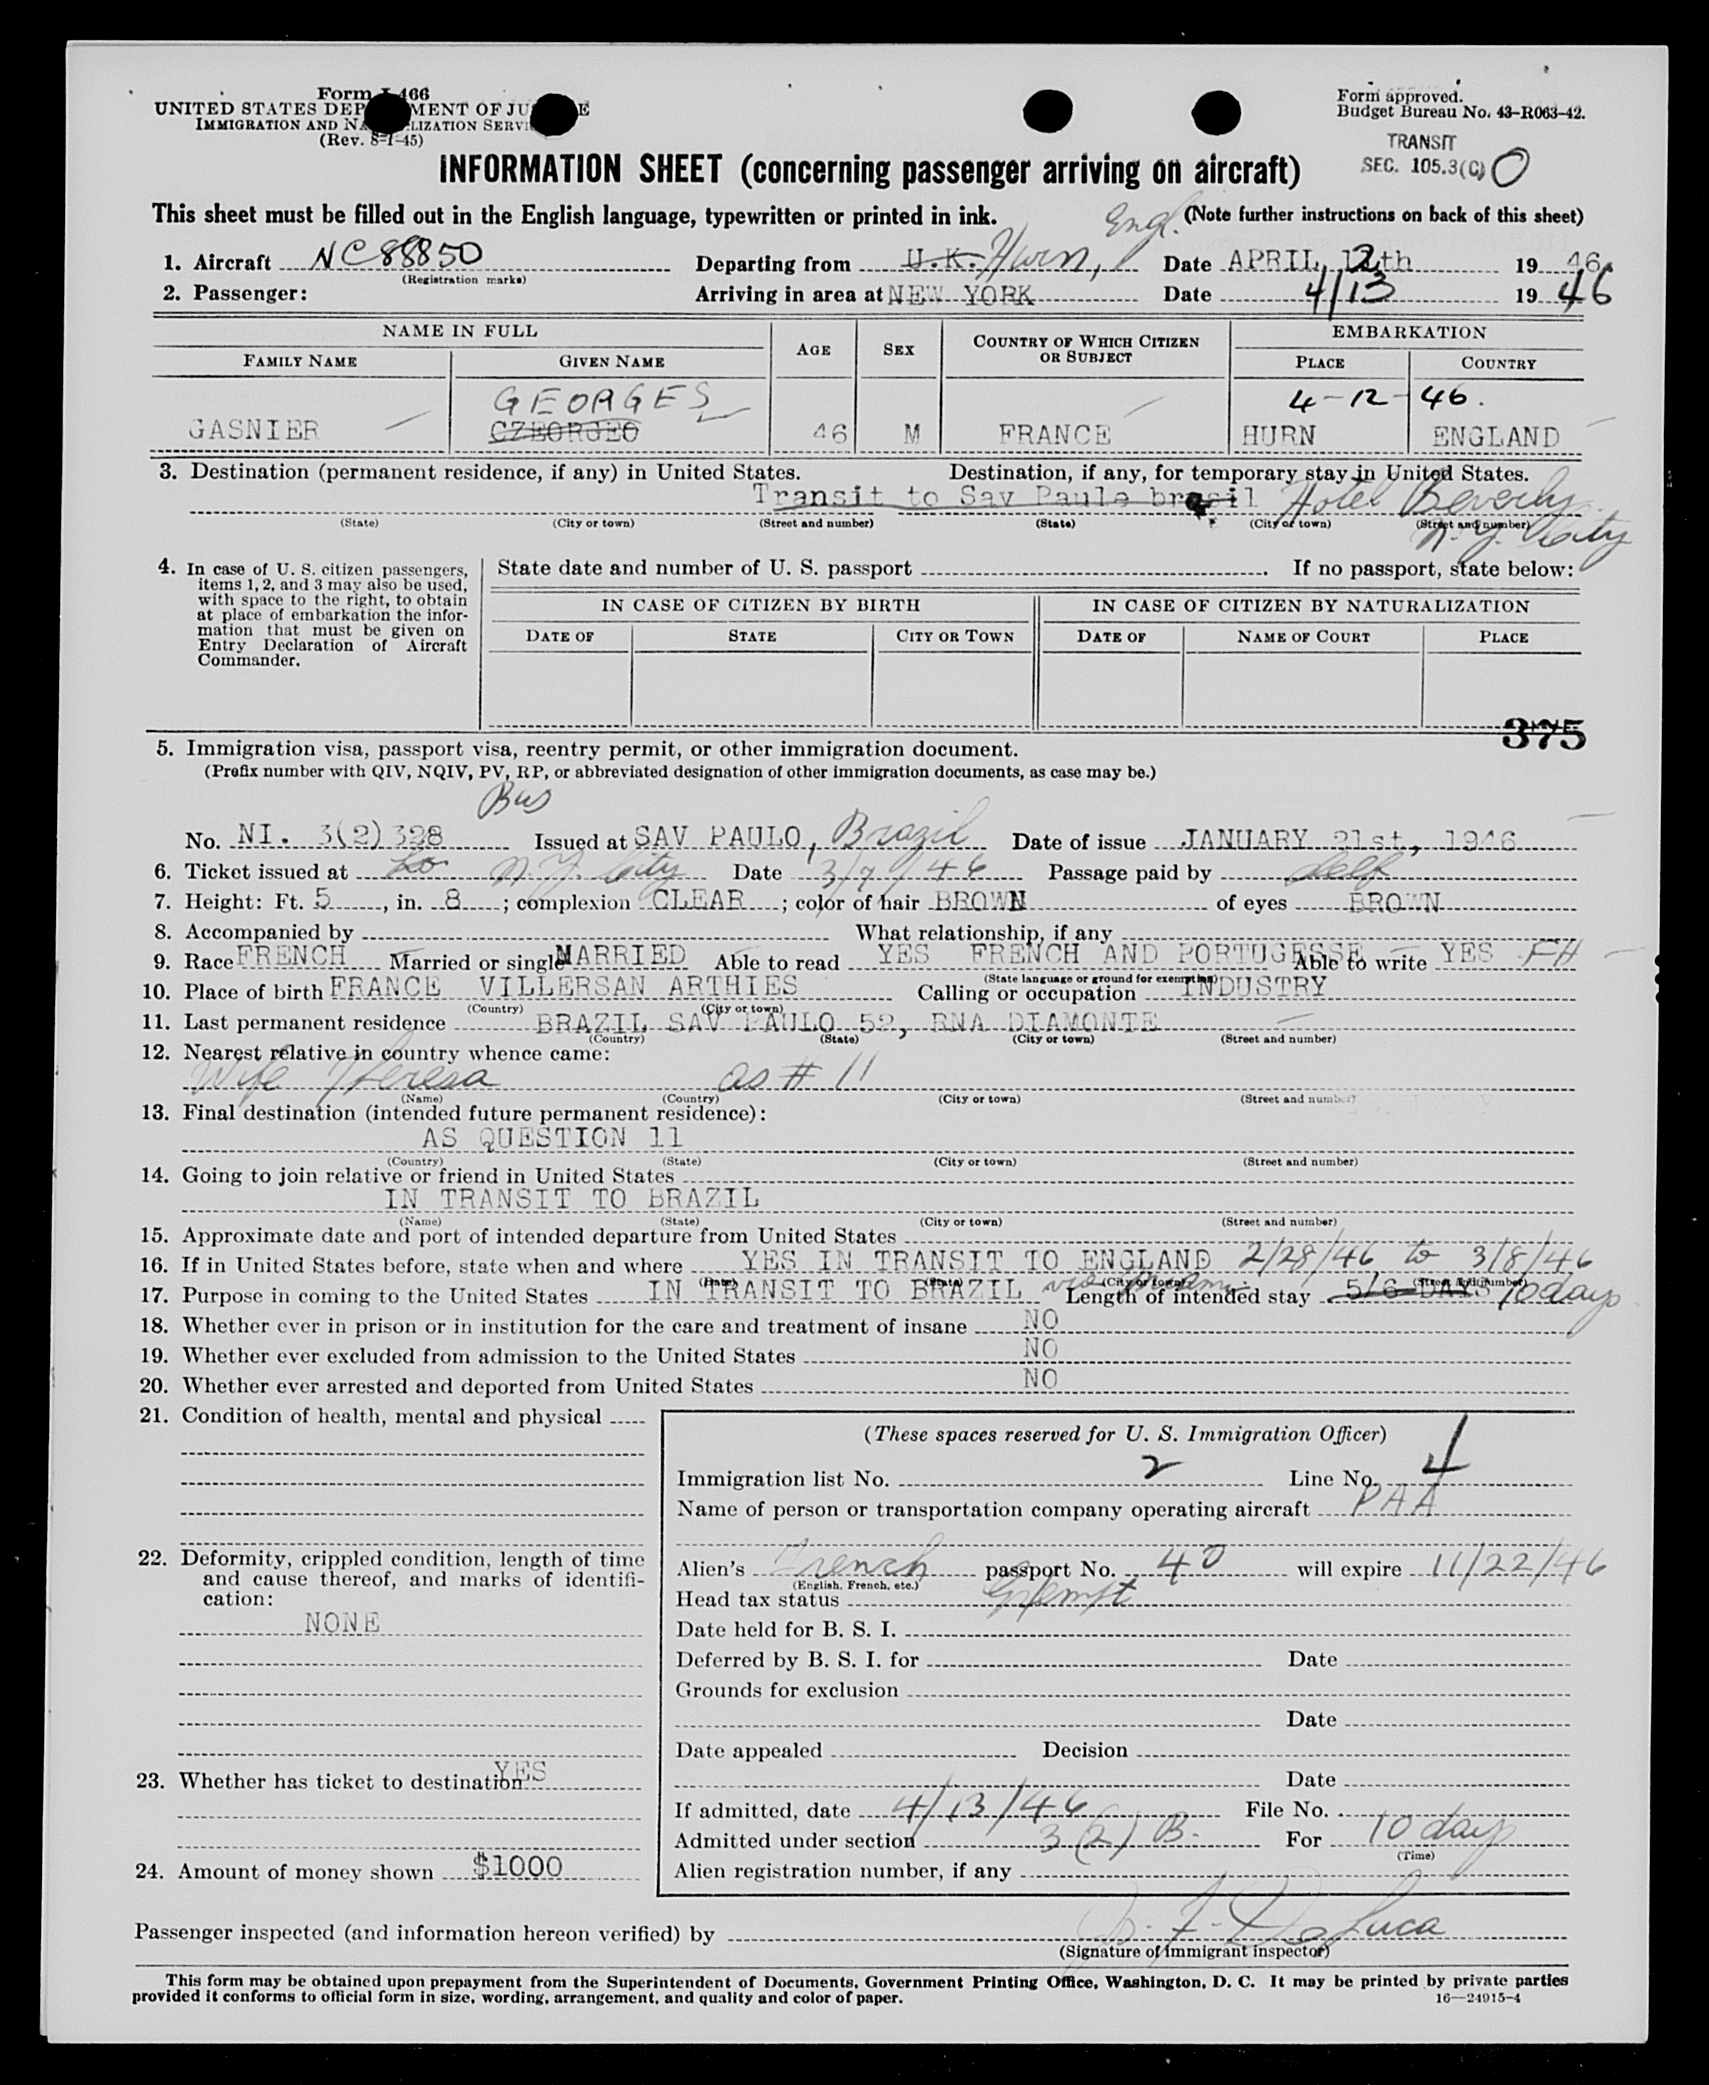 Form I-466
UNITED STATES DEP MENT OF JU E
IMMIGRATION AND NA LIZATION SERVI
(Rev. 8-1-45)
Form approved.
Budget Bureau No. 43-R063-42.
TRANSIT
SEC. 105.3(C) O
INFORMATION SHEET (concerning passenger arriving on aircraft)
This sheet must be filled out in the English language, typewritten or printed in ink. (Note further instructions on back of this sheet)
1. Aircraft NC88850 Departing from U.K. Hurn, Engl. Date APRIL, 12th 1946.
(Registration marks)
2. Passenger: Arriving in area at NEW YORK Date 4/13 1946
NAME IN FULL AGE SEX COUNTRY OF WHICH CITIZEN OR SUBJECT EMBARKATION
FAMILY NAME GIVEN NAME PLACE COUNTRY
GEORGES 4-12-46.
GASNIER CZEORGEO 46 M FRANCE HURN ENGLAND
3. Destination (permanent residence, if any) in United States. Destination, if any, for temporary stay in United States.
Transit to Sav Paulo brasil Hotel Beverly
(State) (City or town) (Street and number) (State) (City or town) (Street and number)
N.Y. City
4. In case of U. S. citizen passengers, items 1, 2, and 3 may also be used, with space to the right, to obtain at place of embarkation the information that must be given on Entry Declaration of Aircraft Commander.
State date and number of U. S. passport . If no passport, state below:
IN CASE OF CITIZEN BY BIRTH IN CASE OF CITIZEN BY NATURALIZATION
DATE OF STATE CITY OR TOWN DATE OF NAME OF COURT PLACE
375
5. Immigration visa, passport visa, reentry permit, or other immigration document.
(Prefix number with QIV, NQIV, PV, RP, or abbreviated designation of other immigration documents, as case may be.)
Bus
No. NI. 3(2) 328 Issued at SAV PAULO, Brazil Date of issue JANUARY 21st, 1946
6. Ticket issued at N.Y. City Date 3/7/46 Passage paid by self
7. Height: Ft. 5, in. 8; complexion CLEAR; color of hair BROWN of eyes BROWN
8. Accompanied by What relationship, if any
9. Race FRENCH Married or single MARRIED Able to read YES FRENCH AND PORTUGESSE Able to write YES FH
(State language or ground for exemption)
10. Place of birth FRANCE VILLERSAN ARTHIES Calling or occupation INDUSTRY
(Country) (City or town)
11. Last permanent residence BRAZIL SAV PAULO 52, RNA DIAMONTE
(Country) (State) (City or town) (Street and number)
12. Nearest relative in country whence came:
Wife Theresa as # 11
(Name) (Country) (City or town) (Street and number)
13. Final destination (intended future permanent residence):
AS QUESTION 11
(Country) (State) (City or town) (Street and number)
14. Going to join relative or friend in United States
IN TRANSIT TO BRAZIL
(Name) (State) (City or town) (Street and number)
15. Approximate date and port of intended departure from United States
16. If in United States before, state when and where YES IN TRANSIT TO ENGLAND 2/28/46 to 3/8/46
(Date) (State) (City or town) (Street and number)
17. Purpose in coming to the United States IN TRANSIT TO BRAZIL via Miami Length of intended stay 5/6 DAYS 10 days
18. Whether ever in prison or in institution for the care and treatment of insane NO
19. Whether ever excluded from admission to the United States NO
20. Whether ever arrested and deported from United States NO
21. Condition of health, mental and physical
22. Deformity, crippled condition, length of time and cause thereof, and marks of identification:
NONE
23. Whether has ticket to destination YES
24. Amount of money shown $1000
(These spaces reserved for U. S. Immigration Officer)
Immigration list No. 2 Line No. 4
Name of person or transportation company operating aircraft PAA
Alien's French passport No. 40 will expire 11/22/46
(English, French, etc.)
Head tax status Exempt
Date held for B. S. I.
Deferred by B. S. I. for Date
Grounds for exclusion
Date
Date appealed Decision
Date
If admitted, date 4/13/46 File No.
Admitted under section 3(2) B. For 10 days
(Time)
Alien registration number, if any
Passenger inspected (and information hereon verified) by F. DeLuca
(Signature of Immigrant Inspector)
This form may be obtained upon prepayment from the Superintendent of Documents, Government Printing Office, Washington, D. C. It may be printed by private parties
provided it conforms to official form in size, wording, arrangement, and quality and color of paper.
16—24915-4